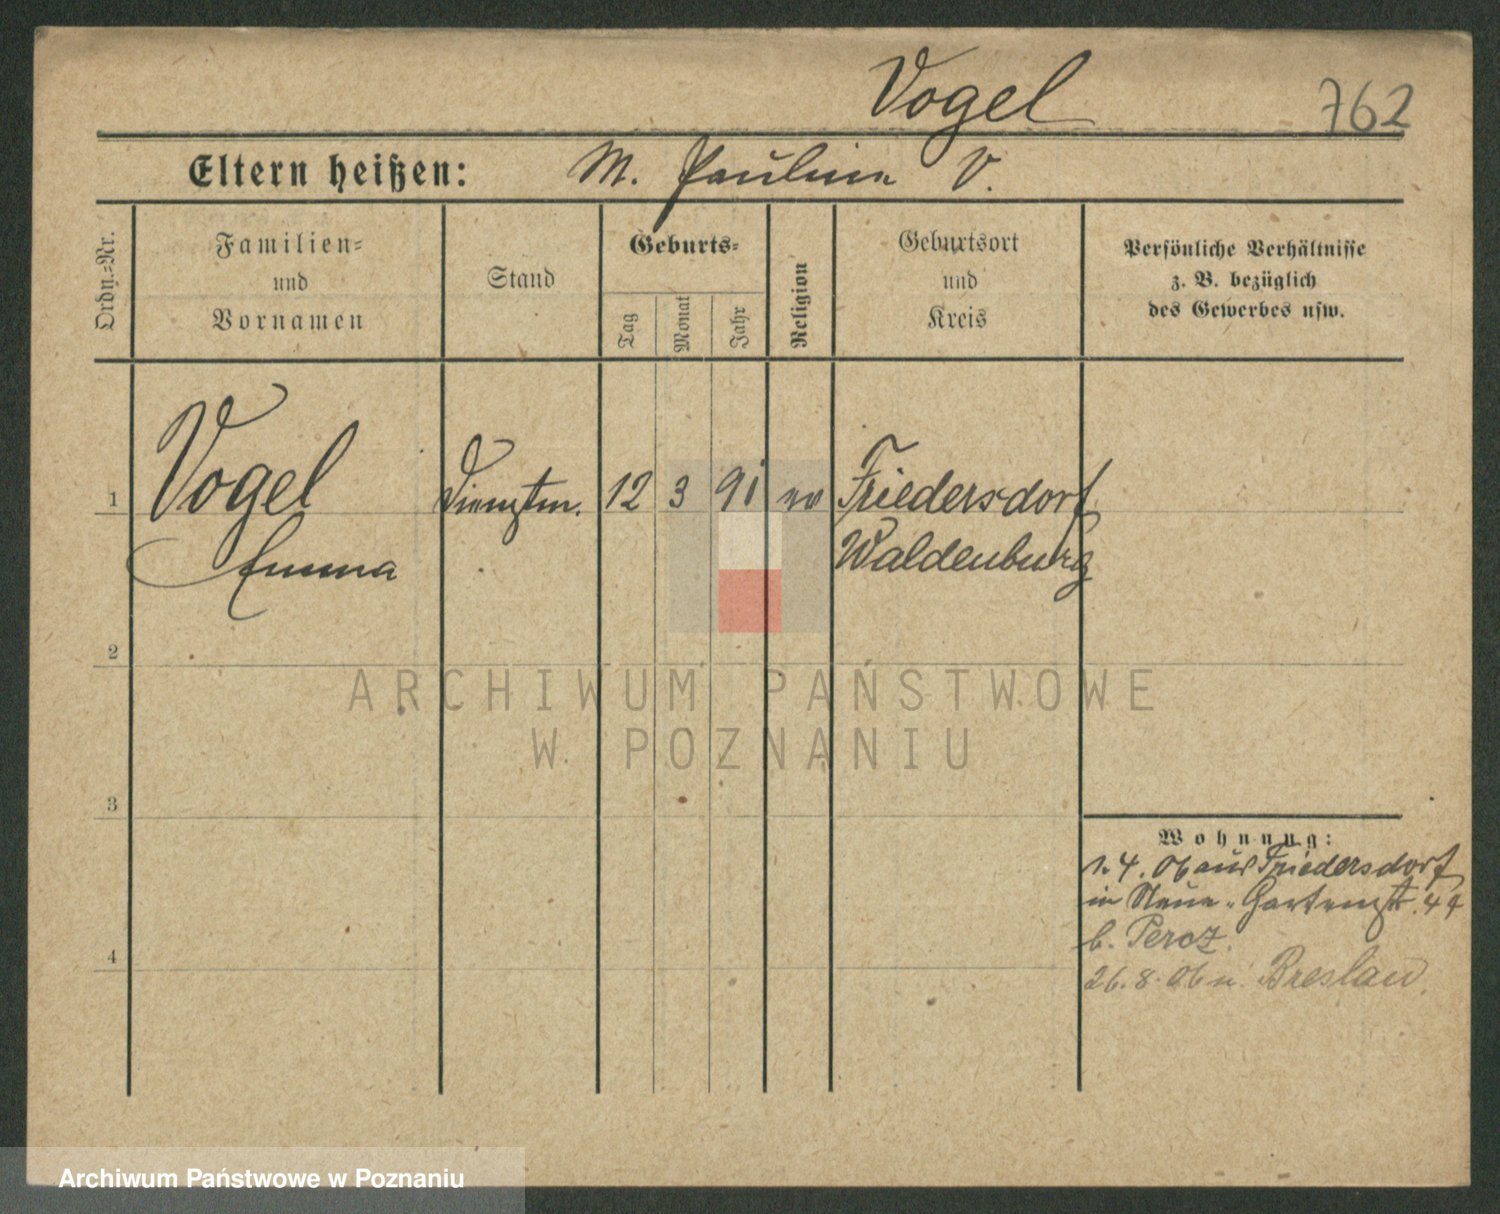 Vogel
762
Eltern heißen: M. Pauline V.
Ordn.=Nr.
Familien=
und
Vornamen
Stand
Geburts=
Tag
Monat
Jahr
Religion
Geburtsort
und
Kreis
Persönliche Verhältnisse
z. B. bezüglich
des Gewerbes usw.
1 Vogel Dienstm. 12 3 91 ev Friedersdorf
Emma Waldenburg
2
ARCHIWUM PAŃSTWOWE
W POZNANIU
3
Wohnung:
1. 4. 06 aus Friedersdorf
in Neue Gartenstr. 44
b. Percz.
4
26. 8. 06 n. Breslau.
Archiwum Państwowe w Poznaniu